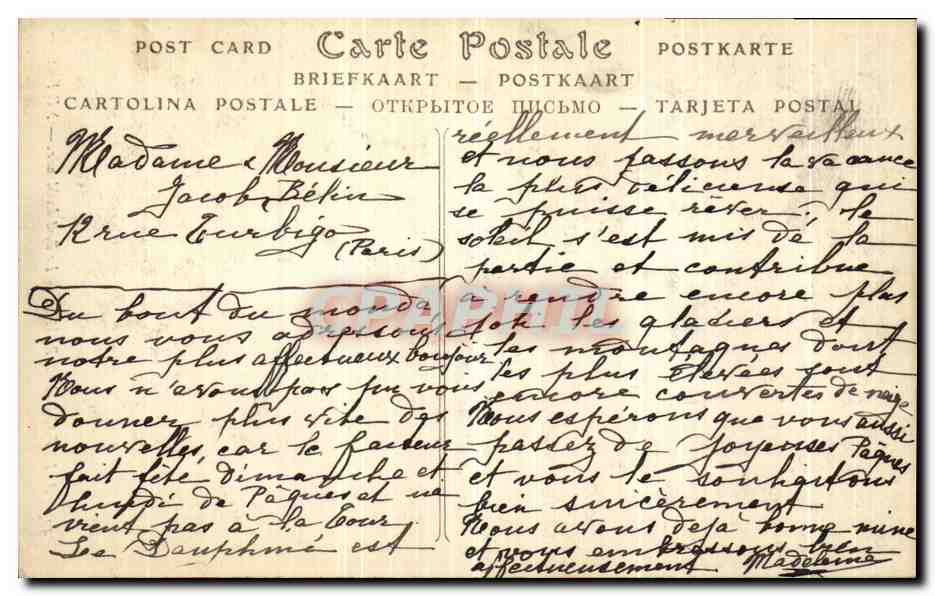 POST CARD Carte Postale POSTKARTE
BRIEFKAART — POSTKAART
CARTOLINA POSTALE — ОТКРЫТОЕ ПИСЬМО — TARJETA POSTAL
Madame & Monsieur
Jacob Bélin
12 rue Turbigo
(Paris)
Du bout du monde
nous vous adressons
notre plus affectueux bonjour
Nous n'avons pas pu vous
donner plus vite des
nouvelles, car le facteur
fait fête Dimanche et
lundi de Pâques et ne
vient pas à la Tour
Le Dauphiné est
réellement merveilleux
et nous passons la vacance
la plus délicieuse qui
se puisse rêver. Le
soleil s'est mis de la
partie et contribue
à rendre encore plus
joli les glaciers et
les montagnes dont
les plus élevées sont
encore couvertes de neige
Nous espérons que vous aussi
passez de joyeuses Pâques
et vous le souhaitons
bien sincèrement
Nous avons déjà bonne mine
et vous embrassons bien
affectueusement Madeleine
CPAPHIL